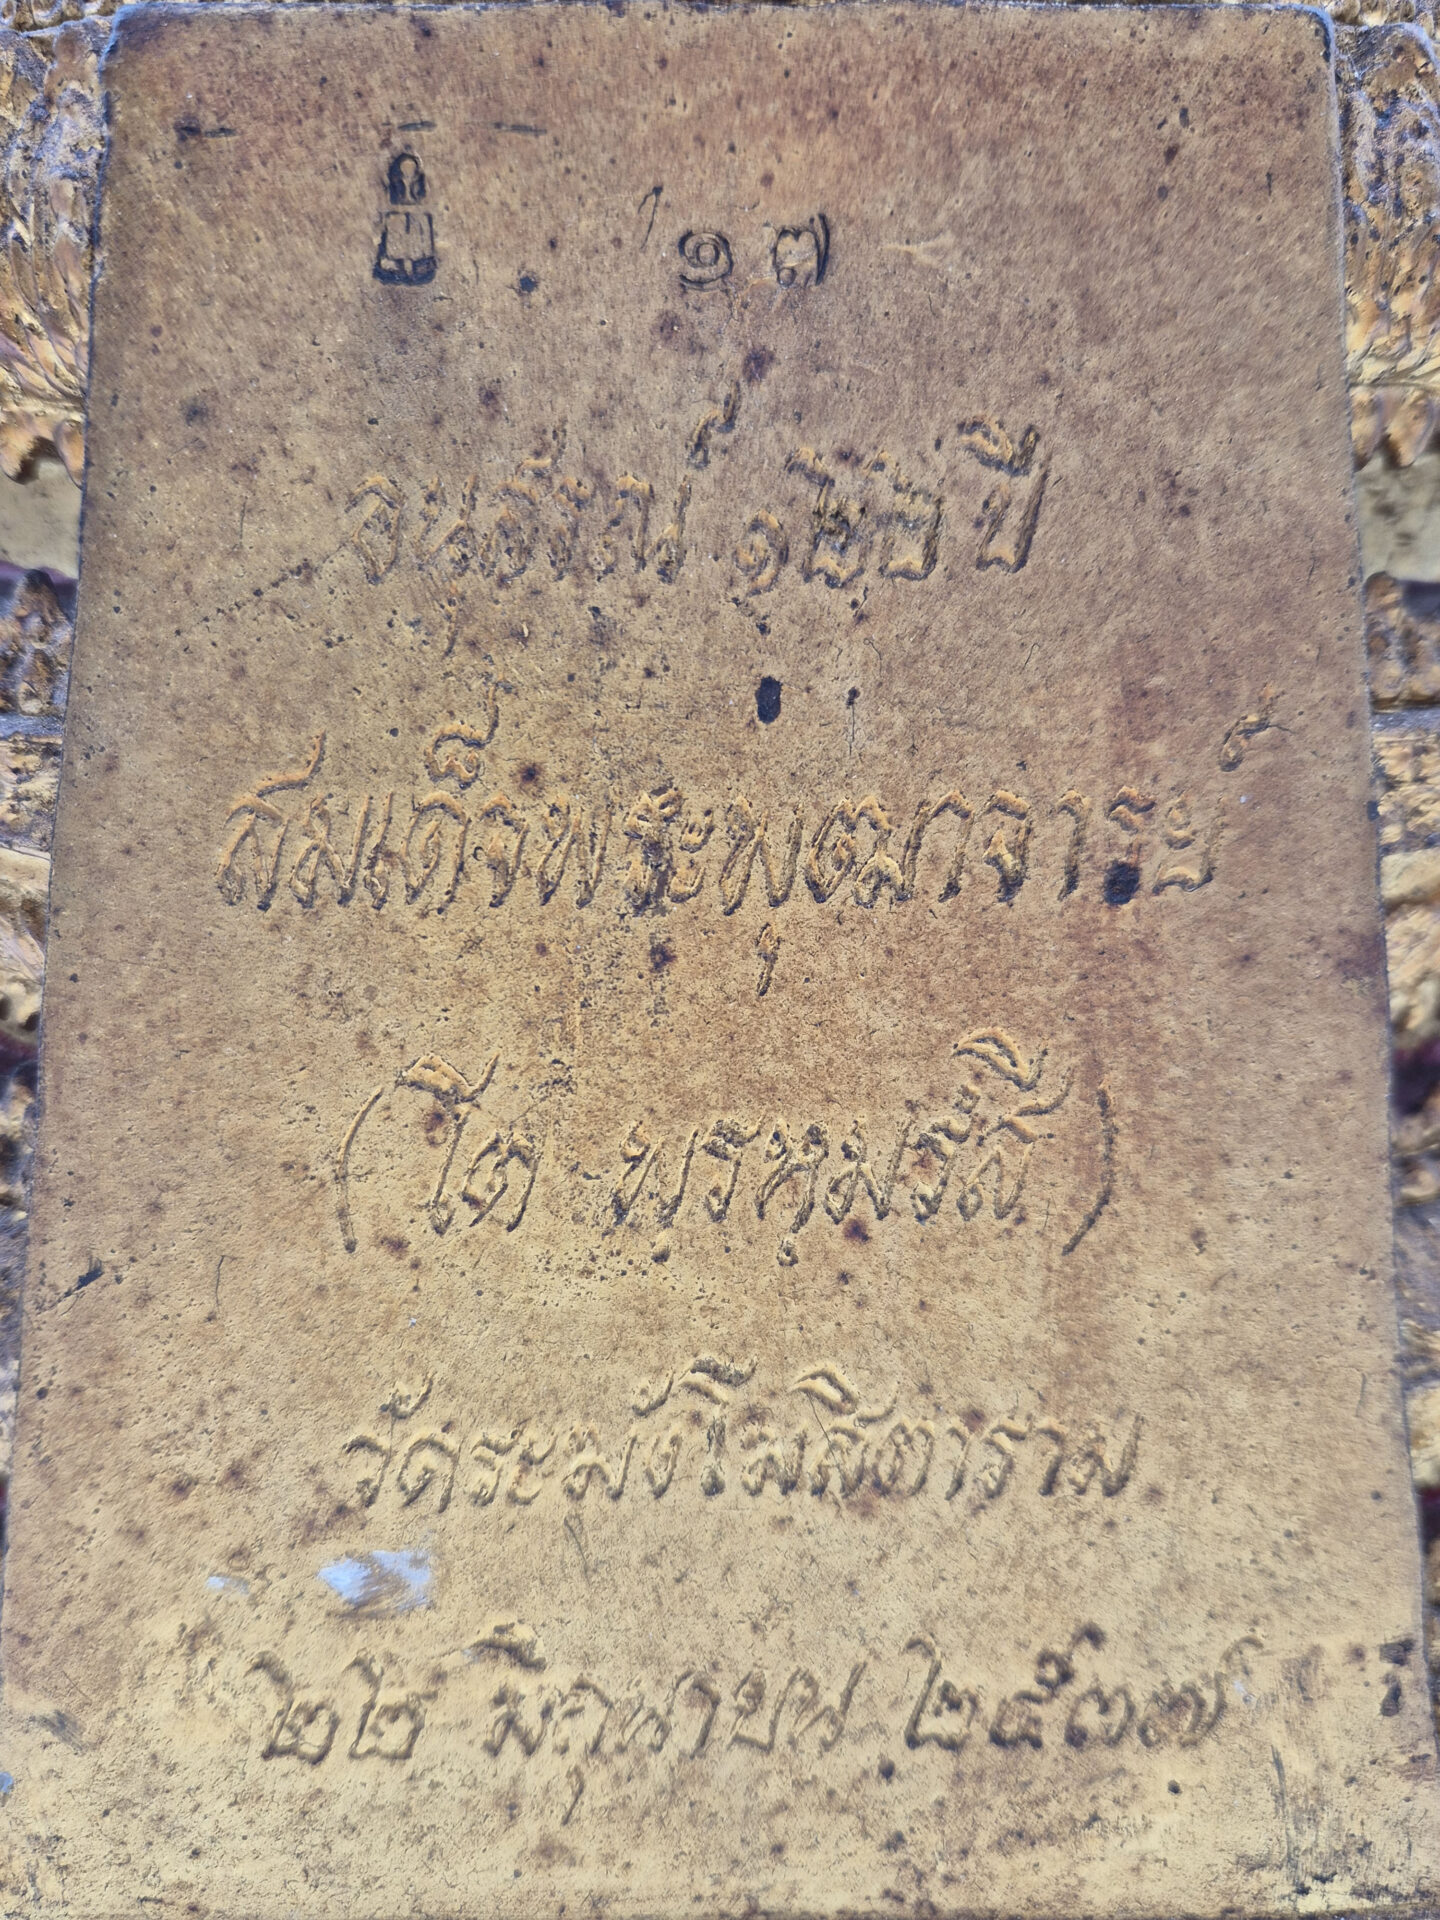 ๑๗
อนุสรณ์ ๑๒๒ ปี
สมเด็จพระพุฒาจารย์
(โต พฺรหฺมรํสี)
วัดระฆังโฆสิตาราม
๒๒ มิถุนายน ๒๕๓๗